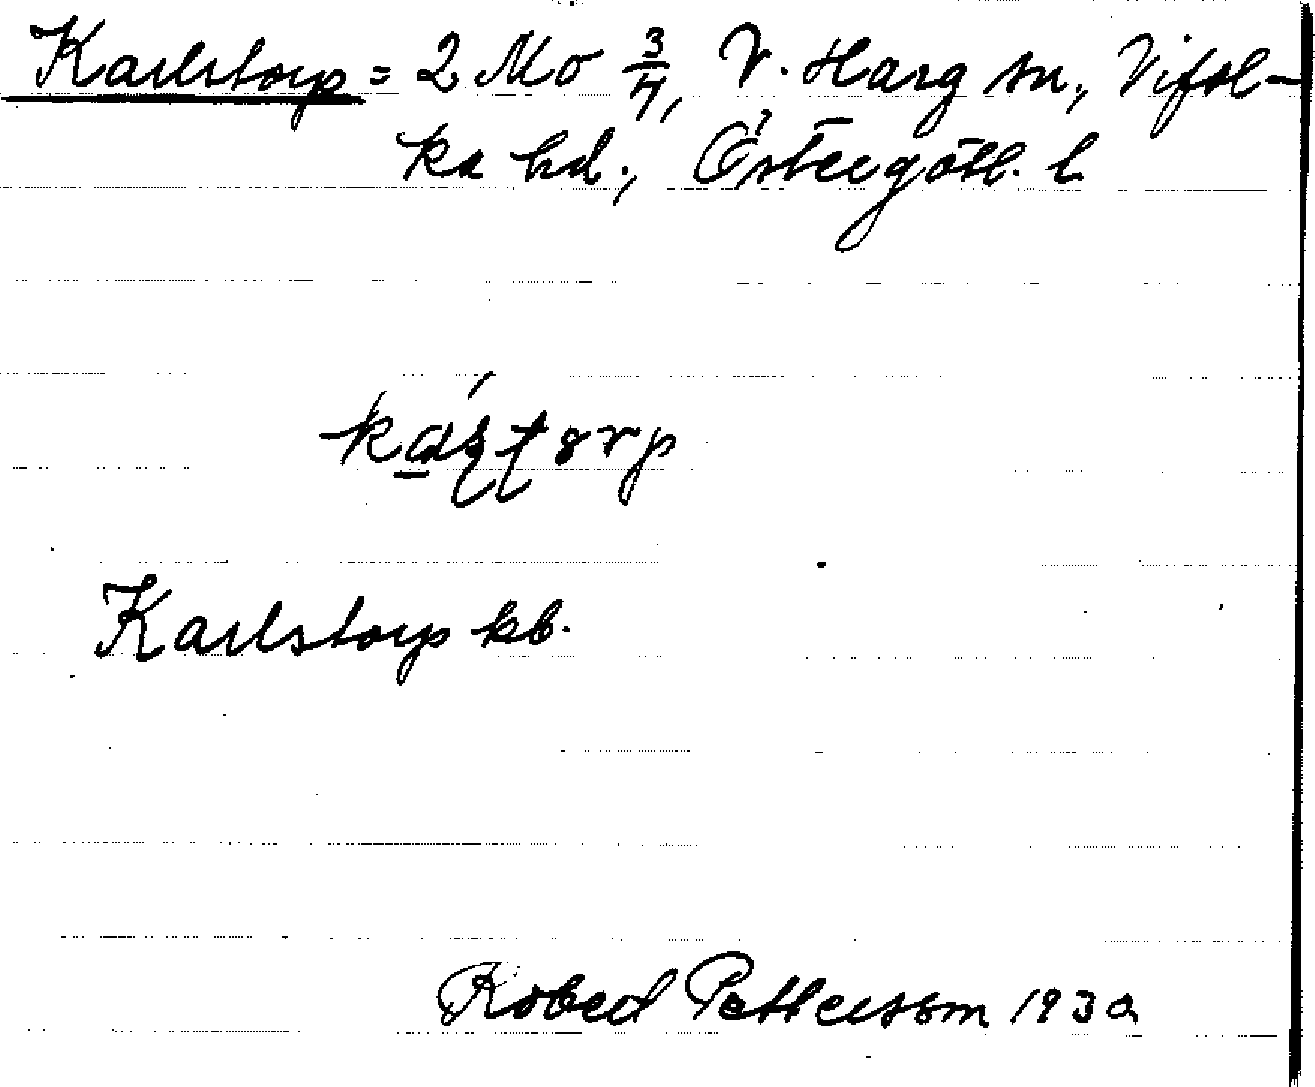 Karlstorp = 2 Mo 3/4, V. Harg sn, Vifol-
ka hd., Östergötl. l
Karlstorp kb.
Robert Pettersson 1930